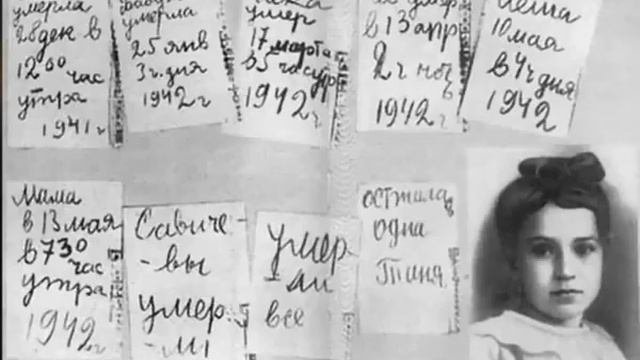 умерла
28 дек в
12 00 час
утра
1941 г
умерла
25 янв
3 ч. дня
1942 г
умер
17 марта
в 5 час утр
1942 г
в 13 апр
2 ч ноч
1942 г
Леша
10 мая
в 4 ч дня
1942
Мама
в 13 мая
в 7 30
час
утра
1942 г
Савиче-
-вы
умер
-ли
умер
-ли
все
осталась
одна
Таня